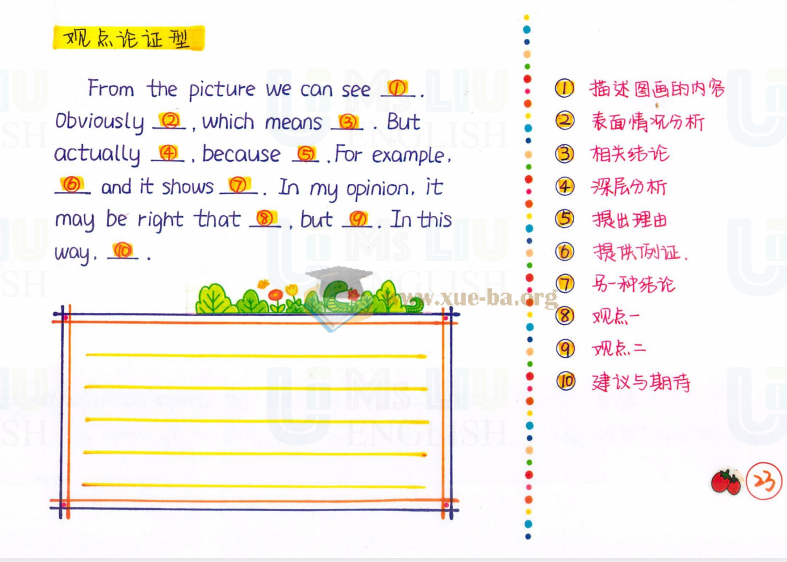 观点论证型
From the picture we can see ①.
Obviously ②, which means ③. But
actually ④, because ⑤. For example,
⑥ and it shows ⑦. In my opinion, it
may be right that ⑧, but ⑨. In this
way, ⑩.
www.xue-ba.org
① 描述图画的内容
② 表面情况分析
③ 相关结论
④ 深层分析
⑤ 提出理由
⑥ 提供例证.
⑦ 另一种结论
⑧ 观点一
⑨ 观点二
⑩ 建议与期待
23
Ms LIU
ENGLISH